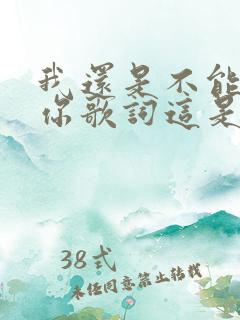 我還是不能
你歌詞這是
38式
未经同意禁止转载